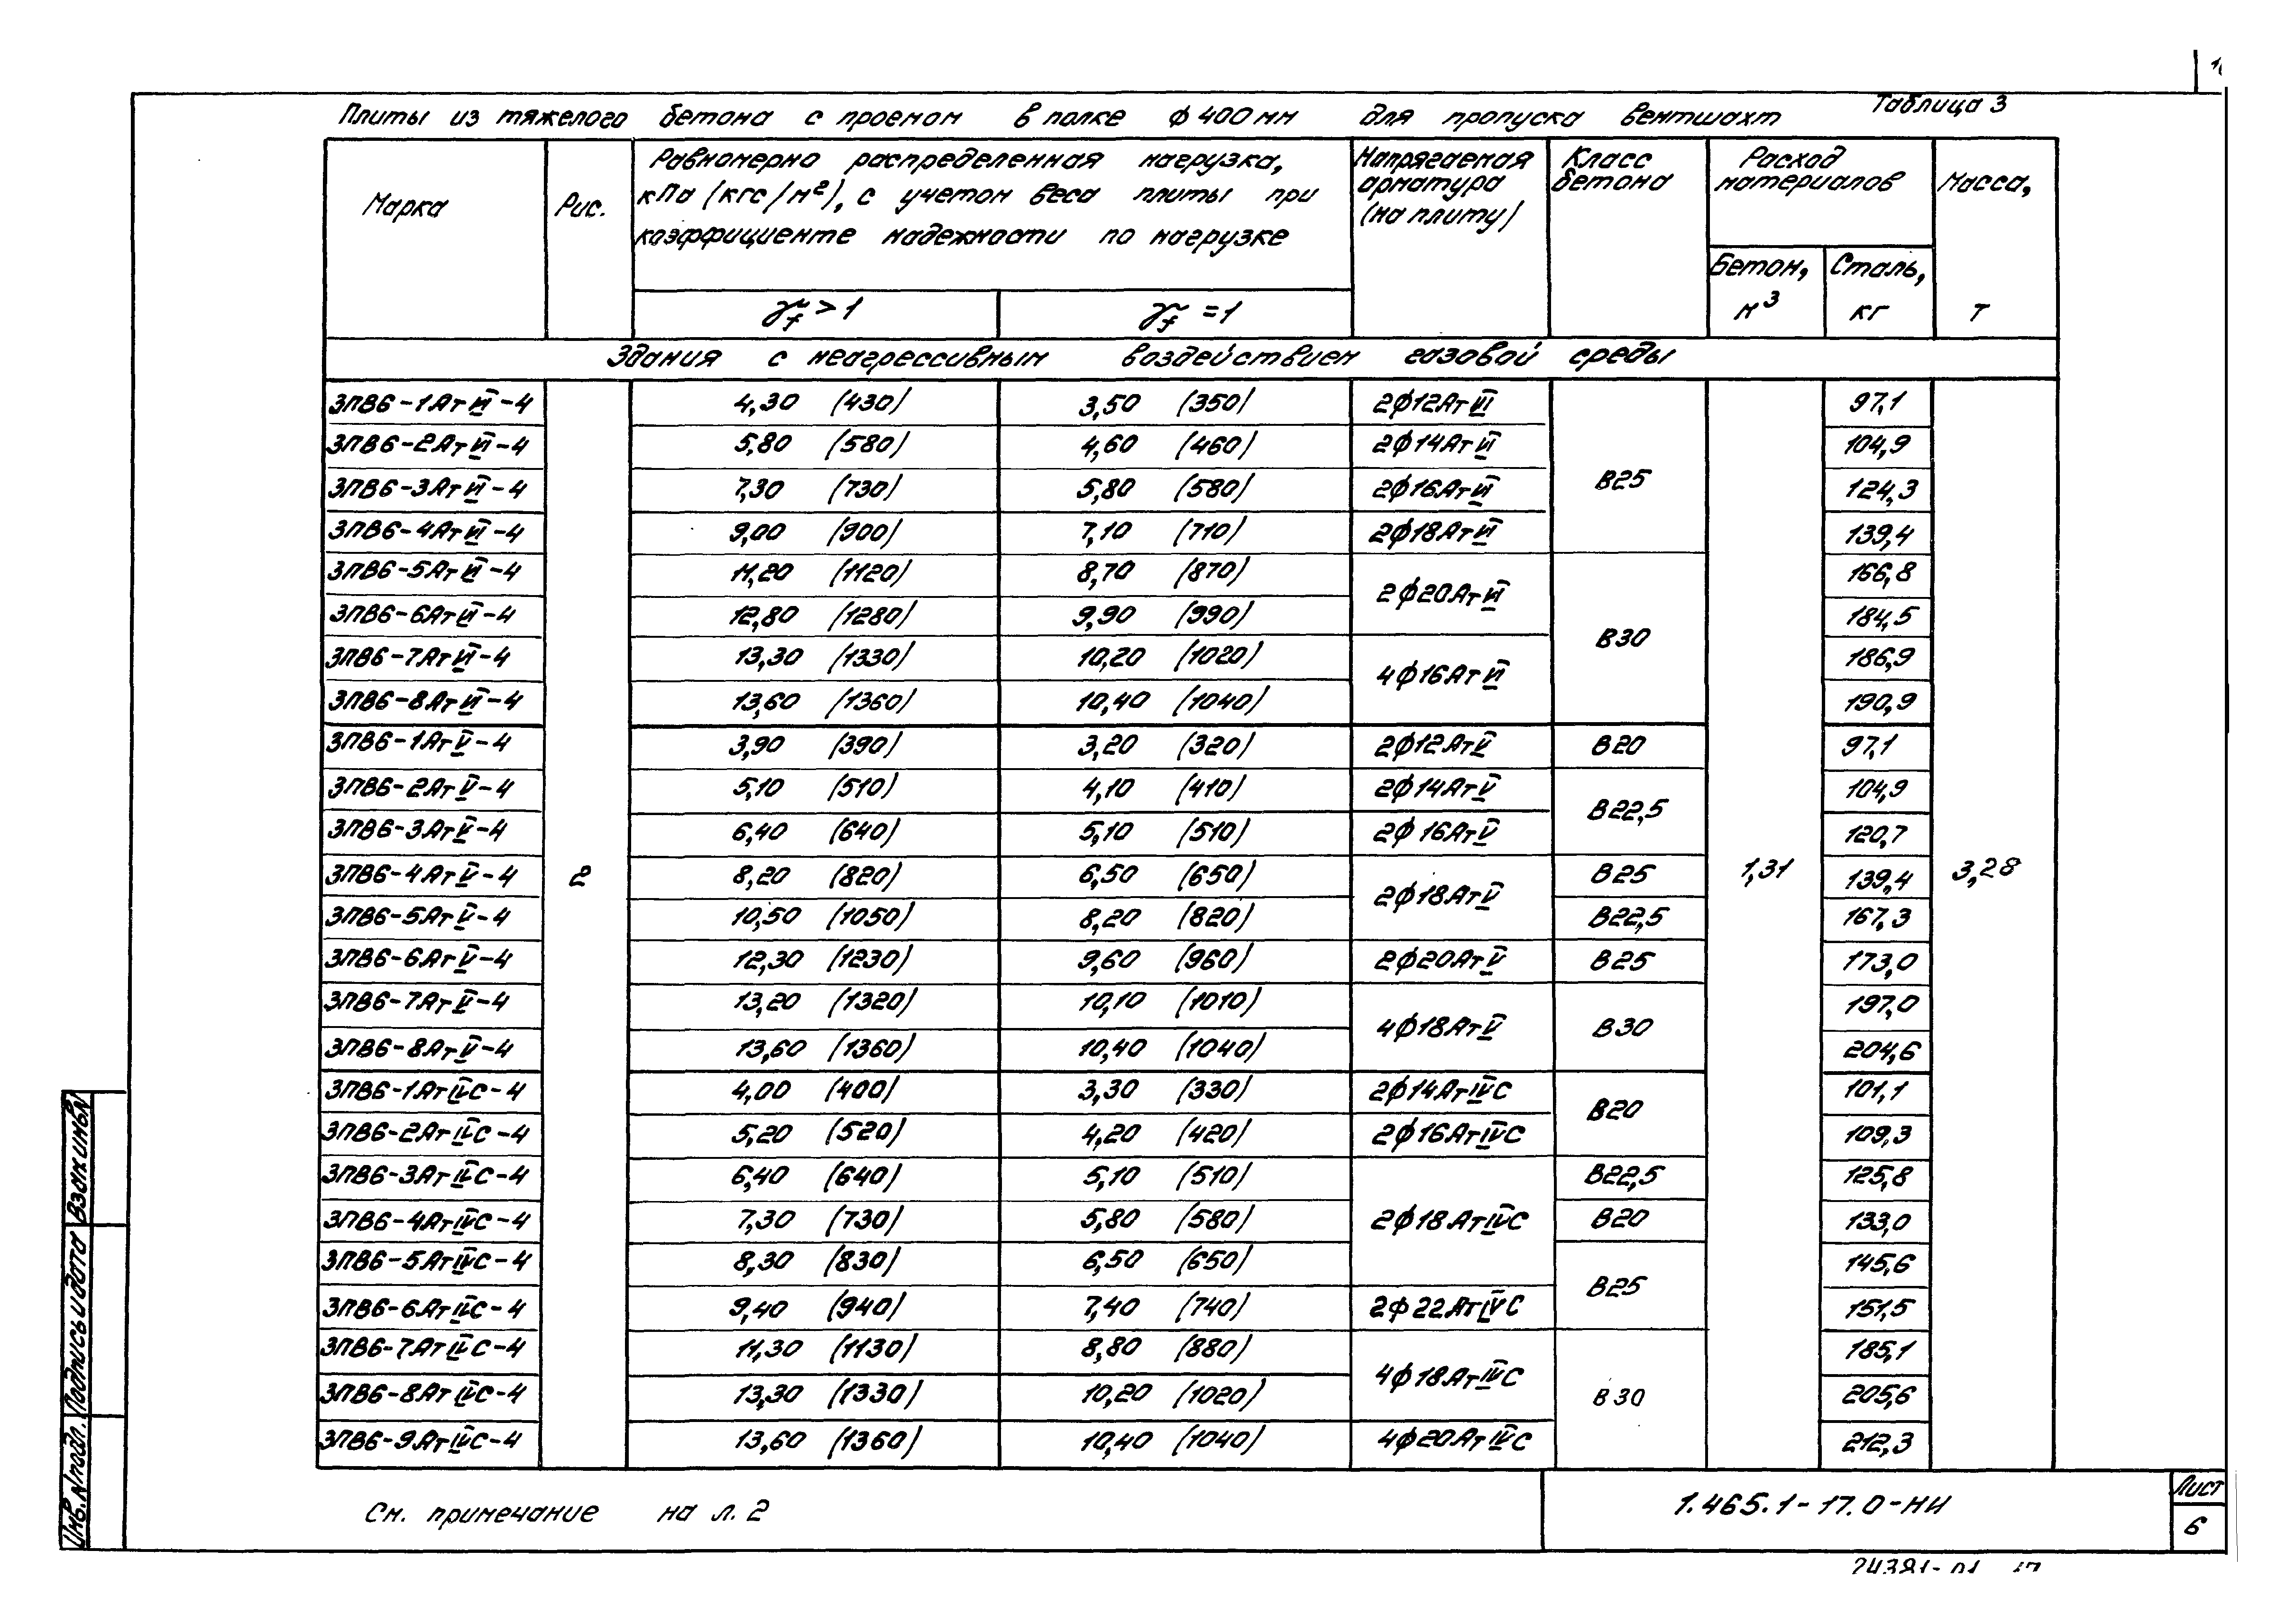 Таблица 3
Плиты из тяжелого бетона с проемом в полке ф 400 мм для пропуска вентшахт
Марка
Рис.
Равномерно распределенная нагрузка,
кПа (кгс/м²), с учетом веса плиты при
коэффициенте надежности по нагрузке
γf > 1
γf = 1
Напрягаемая
арматура
(на плиту)
Класс
бетона
Расход
материалов
Бетон,
м³
Сталь,
кг
Масса,
т
Здания с неагрессивным воздействием газовой среды
3ПВ6-1АтVI-4 4,30 (430) 3,50 (350) 2ф12АтVI 97,1
3ПВ6-2АтVI-4 5,80 (580) 4,60 (460) 2ф14АтVI 104,9
3ПВ6-3АтVI-4 7,30 (730) 5,80 (580) 2ф16АтVI В25 124,3
3ПВ6-4АтVI-4 9,00 (900) 7,10 (710) 2ф18АтVI 139,4
3ПВ6-5АтVI-4 11,20 (1120) 8,70 (870) 2ф20АтVI 166,8
3ПВ6-6АтVI-4 12,80 (1280) 9,90 (990) В30 184,5
3ПВ6-7АтVI-4 13,30 (1330) 10,20 (1020) 4ф16АтVI 186,9
3ПВ6-8АтVI-4 13,60 (1360) 10,40 (1040) 190,9
3ПВ6-1АтV-4 3,90 (390) 3,20 (320) 2ф12АтV В20 97,1
3ПВ6-2АтV-4 5,10 (510) 4,10 (410) 2ф14АтV В22,5 104,9
3ПВ6-3АтV-4 6,40 (640) 5,10 (510) 2ф16АтV 120,7
3ПВ6-4АтV-4 2 8,20 (820) 6,50 (650) 2ф18АтV В25 1,31 139,4 3,28
3ПВ6-5АтV-4 10,50 (1050) 8,20 (820) В22,5 167,3
3ПВ6-6АтV-4 12,30 (1230) 9,60 (960) 2ф20АтV В25 173,0
3ПВ6-7АтV-4 13,20 (1320) 10,10 (1010) 4ф18АтV В30 197,0
3ПВ6-8АтV-4 13,60 (1360) 10,40 (1040) 204,6
3ПВ6-1АтIVС-4 4,00 (400) 3,30 (330) 2ф14АтIVС В20 101,1
3ПВ6-2АтIVС-4 5,20 (520) 4,20 (420) 2ф16АтIVС 109,3
3ПВ6-3АтIVС-4 6,40 (640) 5,10 (510) В22,5 125,8
3ПВ6-4АтIVС-4 7,30 (730) 5,80 (580) 2ф18АтIVС В20 133,0
3ПВ6-5АтIVС-4 8,30 (830) 6,50 (650) В25 145,6
3ПВ6-6АтIVС-4 9,40 (940) 7,40 (740) 2ф22АтIVС 151,5
3ПВ6-7АтIVС-4 11,30 (1130) 8,80 (880) 4ф18АтIVС 185,1
3ПВ6-8АтIVС-4 13,30 (1330) 10,20 (1020) В30 205,6
3ПВ6-9АтIVС-4 13,60 (1360) 10,40 (1040) 4ф20АтIVС 212,3
См. примечание на л. 2
1.465.1-17.0-НИ
Лист
6
Инв.Nподл.
Подпись и дата
Взам.инв.N